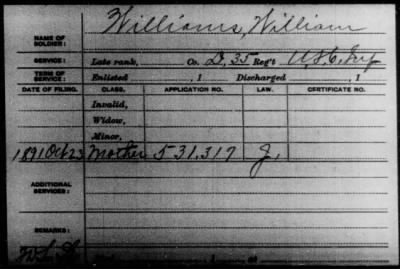 NAME OF SOLDIER: Williams, William
SERVICE: Late rank, Co. D, 35 Reg't U.S.C. Inf
TERM OF SERVICE: Enlisted , 1 Discharged , 1
DATE OF FILING. CLASS. APPLICATION NO. LAW. CERTIFICATE NO.
Invalid,
Widow,
Minor,
1891 Oct 23 Mother 531,317 J,
ADDITIONAL SERVICES:
REMARKS: